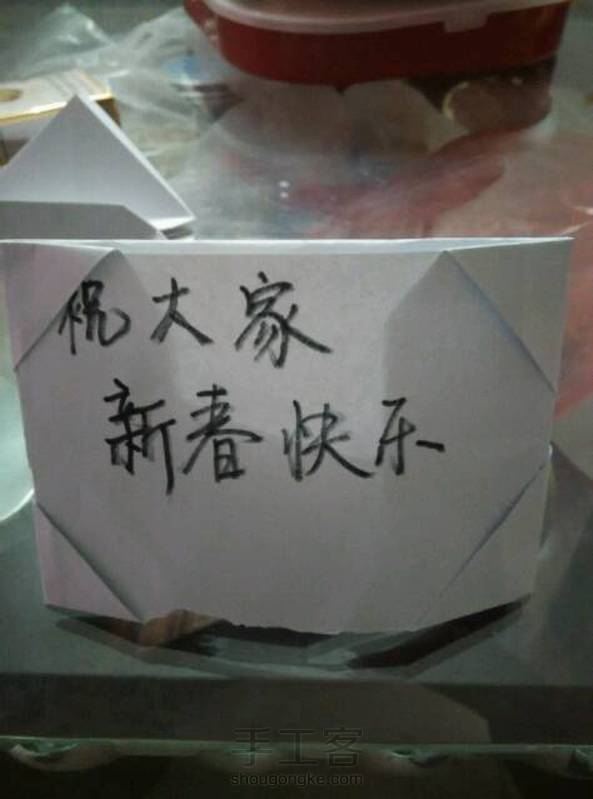 祝大家
新春快乐
手工客
shougongke.com